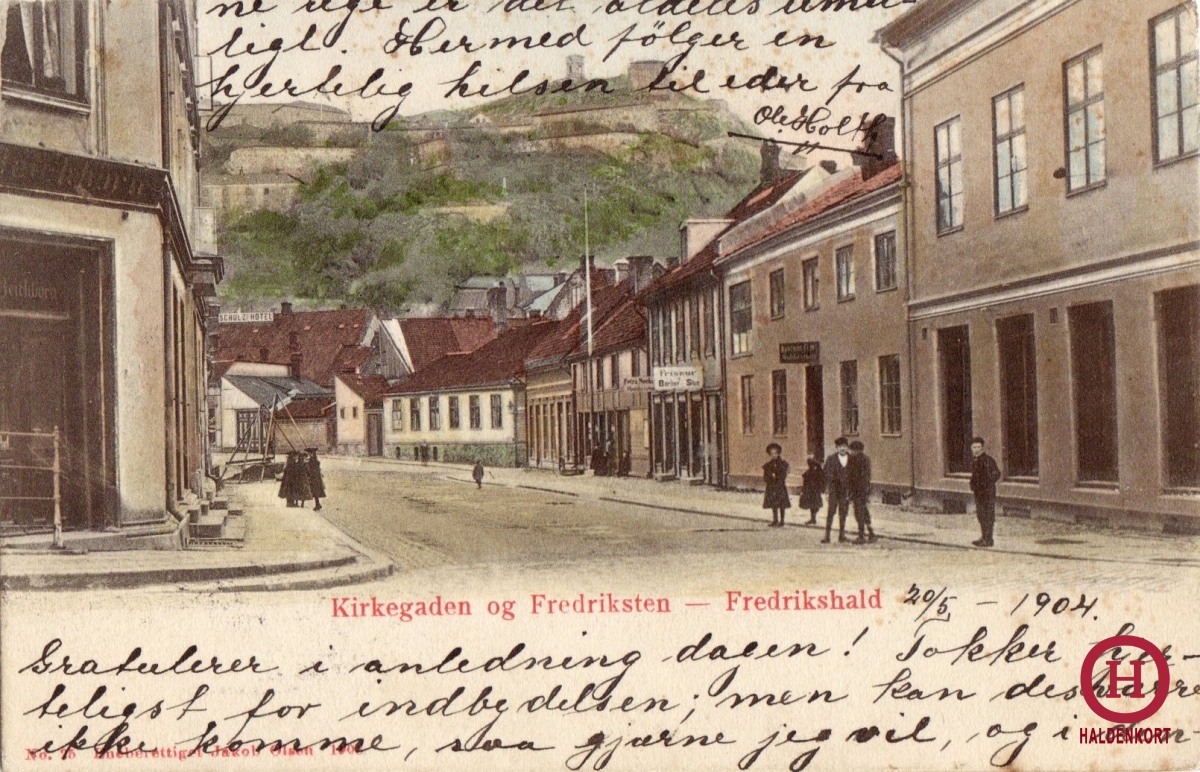 ne uge er det aldeles umu-
ligt. Hermed følger en
hjertelig hilsen til eder fra
Ole Holth
SCHULZ HOTEL
Frisør
Kirkegaden og Fredriksten — Fredrikshald 20/5 – 1904.
Gratulerer i anledning dagen! Takker hjer-
teligst for indbydelsen; men kan desværre
ikke komme, saa gjærne jeg vil, og i den-
No. 75 Eneberettiget Jakob Olsen
H
HALDENKORT